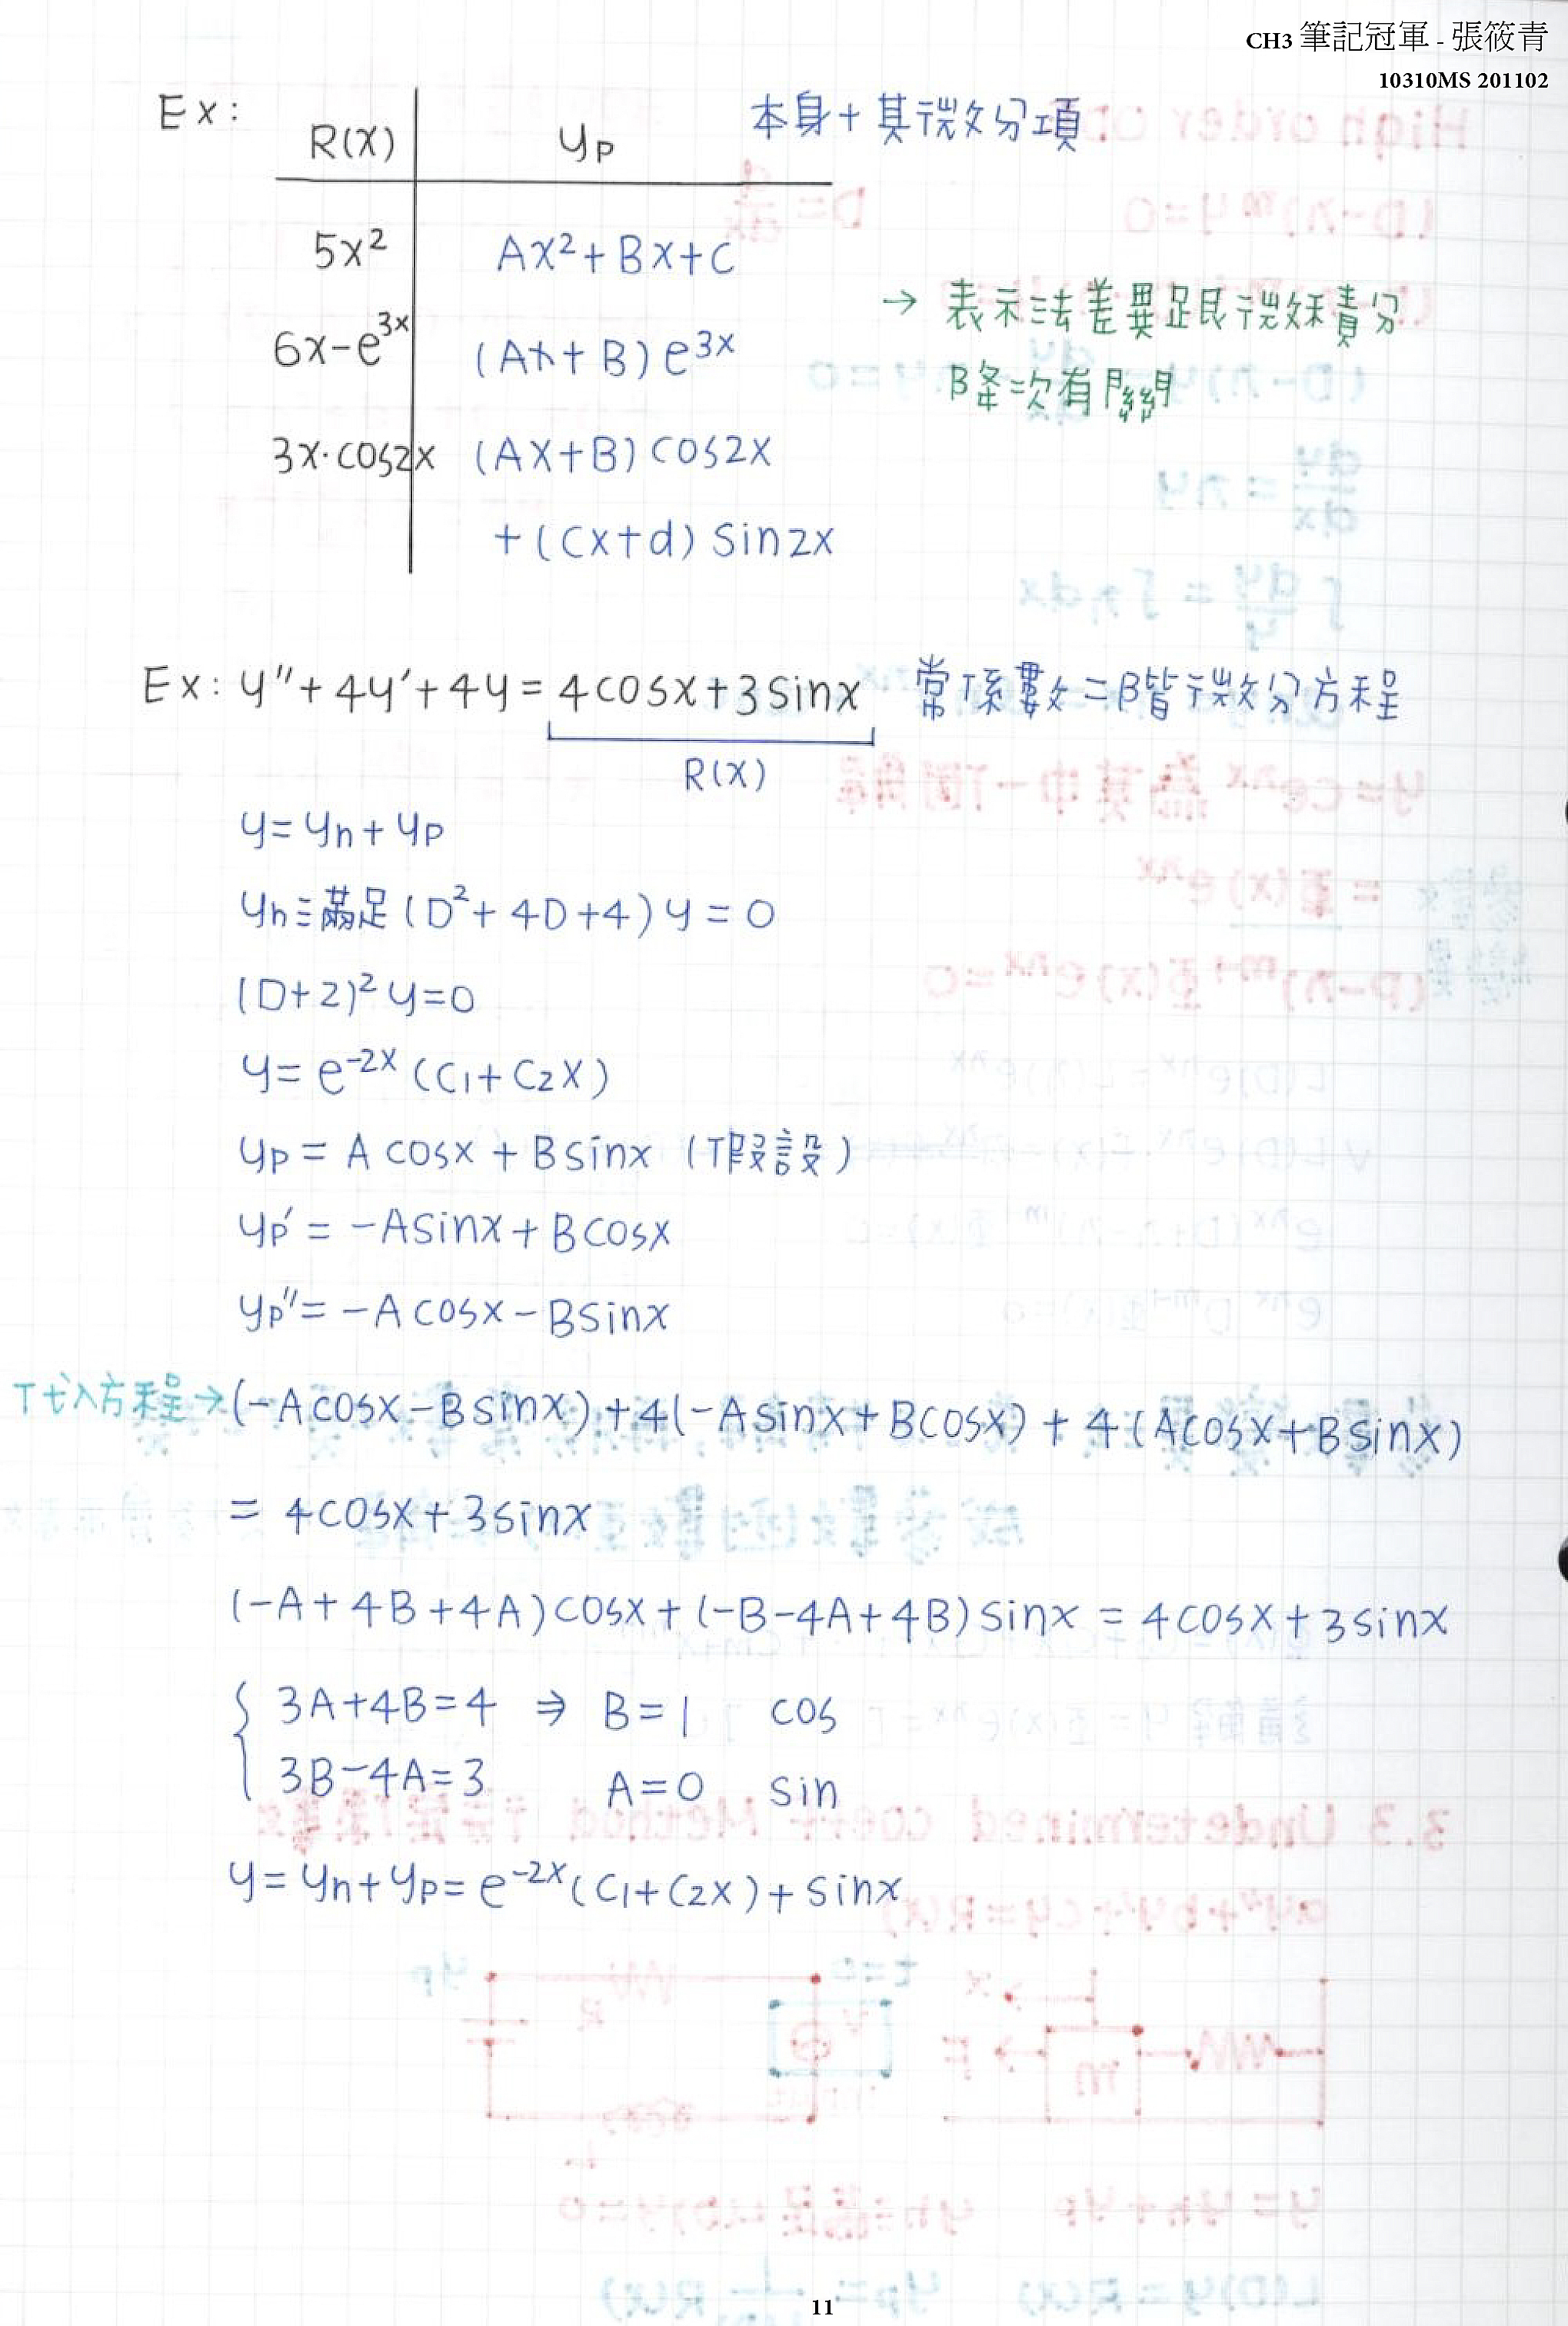 CH3 筆記冠軍 - 張筱青
10310MS 201102
Ex: R(x) yp 本身+其微分項
5x² Ax²+Bx+C
→ 表示法差異跟微積分
降次有關
6x-e^3x (Ax+B)e^3x
3x·cos2x (Ax+B)cos2x
+(Cx+d) sin2x
Ex: y''+4y'+4y=4cosx+3sinx 常係數二階微分方程
R(x)
y=yh+yp
yh≡滿足(D²+4D+4)y=0
(D+2)²y=0
y=e^-2x (C₁+C₂x)
yp=A cosx+B sinx (假設)
yp'=-Asinx+Bcosx
yp''=-A cosx-Bsinx
代入方程→(-Acosx-Bsinx)+4(-Asinx+Bcosx)+4(Acosx+Bsinx)
=4cosx+3sinx
(-A+4B+4A)cosx+(-B-4A+4B)sinx=4cosx+3sinx
{ 3A+4B=4 ⇒ B=1 cos
3B-4A=3 A=0 sin
y=yh+yp=e^-2x(C₁+C₂x)+sinx
11